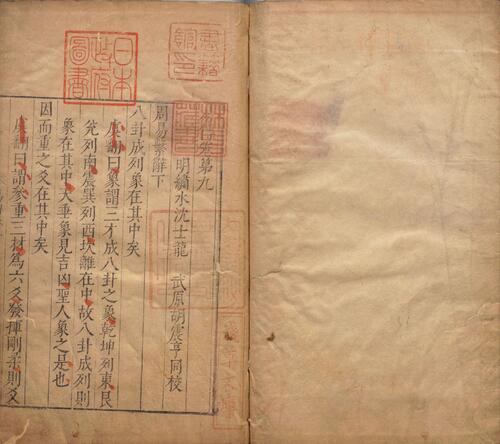 易傳卷第九
明繡水沈士龍 武原胡震亨同校
周易繫辭下
八卦成列象在其中矣
虞翻曰象謂三才成八卦之象乾坤列東艮
兌列南震巽列西坎離在中故八卦成列則
象在其中天垂象見吉凶聖人象之是也
因而重之爻在其中矣
虞翻曰謂參重三材爲六爻發揮剛柔則爻
日本
政府
圖書